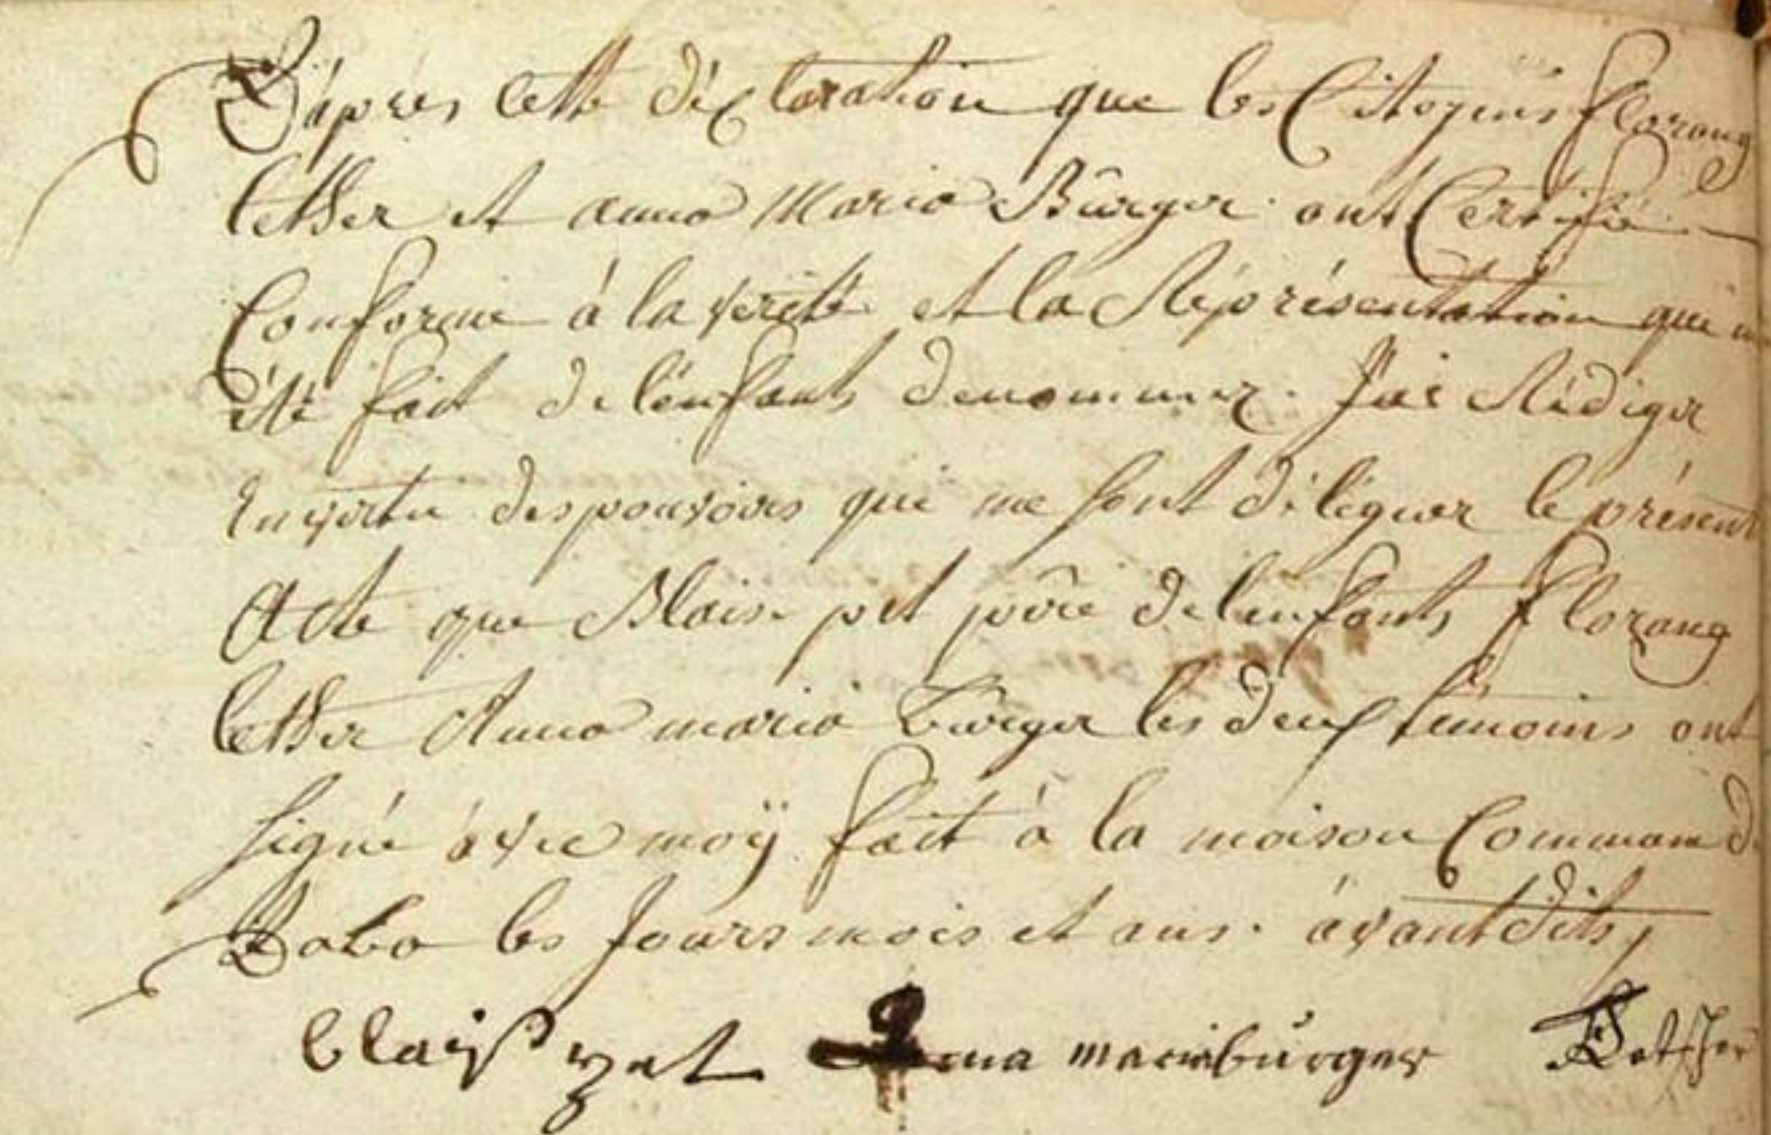 D'áprés Cette déclaration que les Citoyens florang
letther et anna Maria Bûrger ont Certifié
Conforme á la verité et la Réprésentation qui
été fait de lénfants denommez. J'ai Rédiger
En vertu des pouvoires qui me sont déléguer le présent
Acte que Blais pet pére de lenfants florang
letther Anna maria Bûrger les deux témoins ont
signé ávec moÿ fait á la maison Commun d
Dabo les Jours mois et ans. ávant dits,
blaÿs pet ana mariabürger